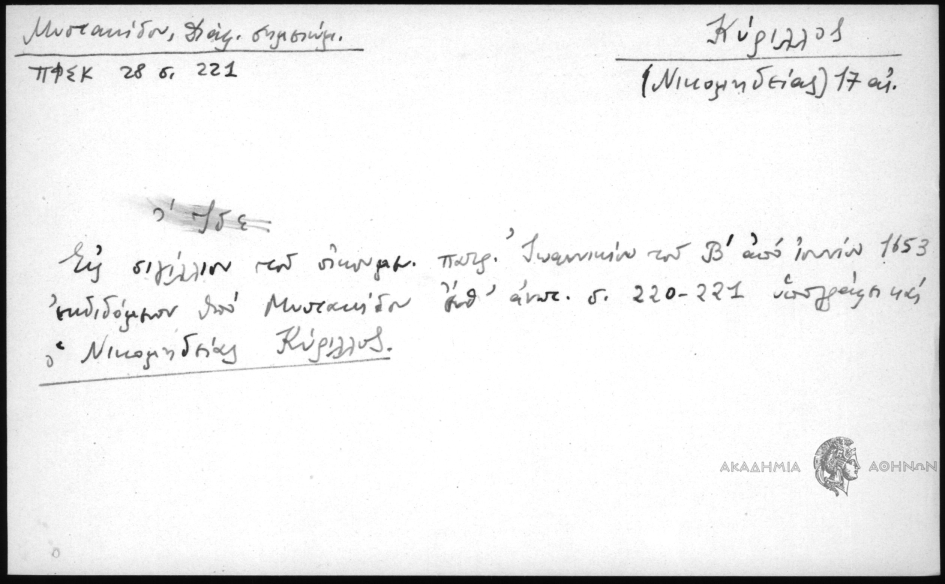 Μυστακίδου, Διάφ. σημειώμ.
ΠΦΣΚ 28 σ. 221
Κύριλλος
(Νικομηδείας) 17 αἰ.
Εἰς σιγίλλιον τοῦ οἰκουμεν. πατρ. Ἰωαννικίου τοῦ Β' ἀπό Ἰουνίου 1653
ἐκδιδόμενον ὑπό Μυστακίδου ἔνθ' ἀνωτ. σ. 220-221 ὑπογράφει καί
ὁ Νικομηδείας Κύριλλος.
ΑΚΑΔΗΜΙΑ ΑΘΗΝΩΝ